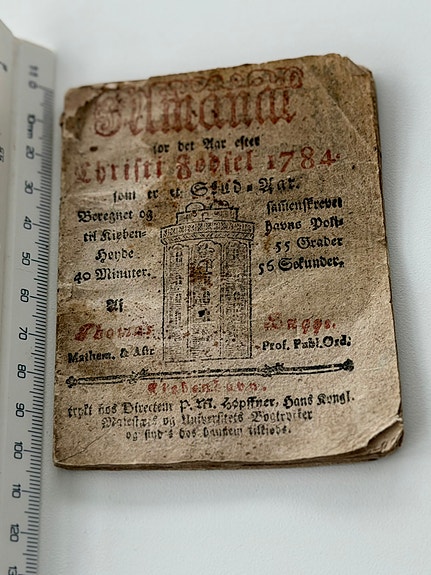 Almanac
for det Aar efter
Christi Fødsel 1784.
som er et Skud-Aar.
Beregnet og sammenskrevet
til Kiøben- havns Pol-
Høyde 55 Grader
40 Minuter. 56 Sekunder.
Af
Thomas Bugge,
Mathem. & Astr. Prof. Publ. Ord.
Kiøbenhavn,
trykt hos Directeur P. M. Höpffner, Hans Kongl.
Majestæts og Universitets Bogtrykker
og findes hos hannem tilkiøbs.
0mm 10 20 30 40 50 60 70 80 90 100 110 120 130